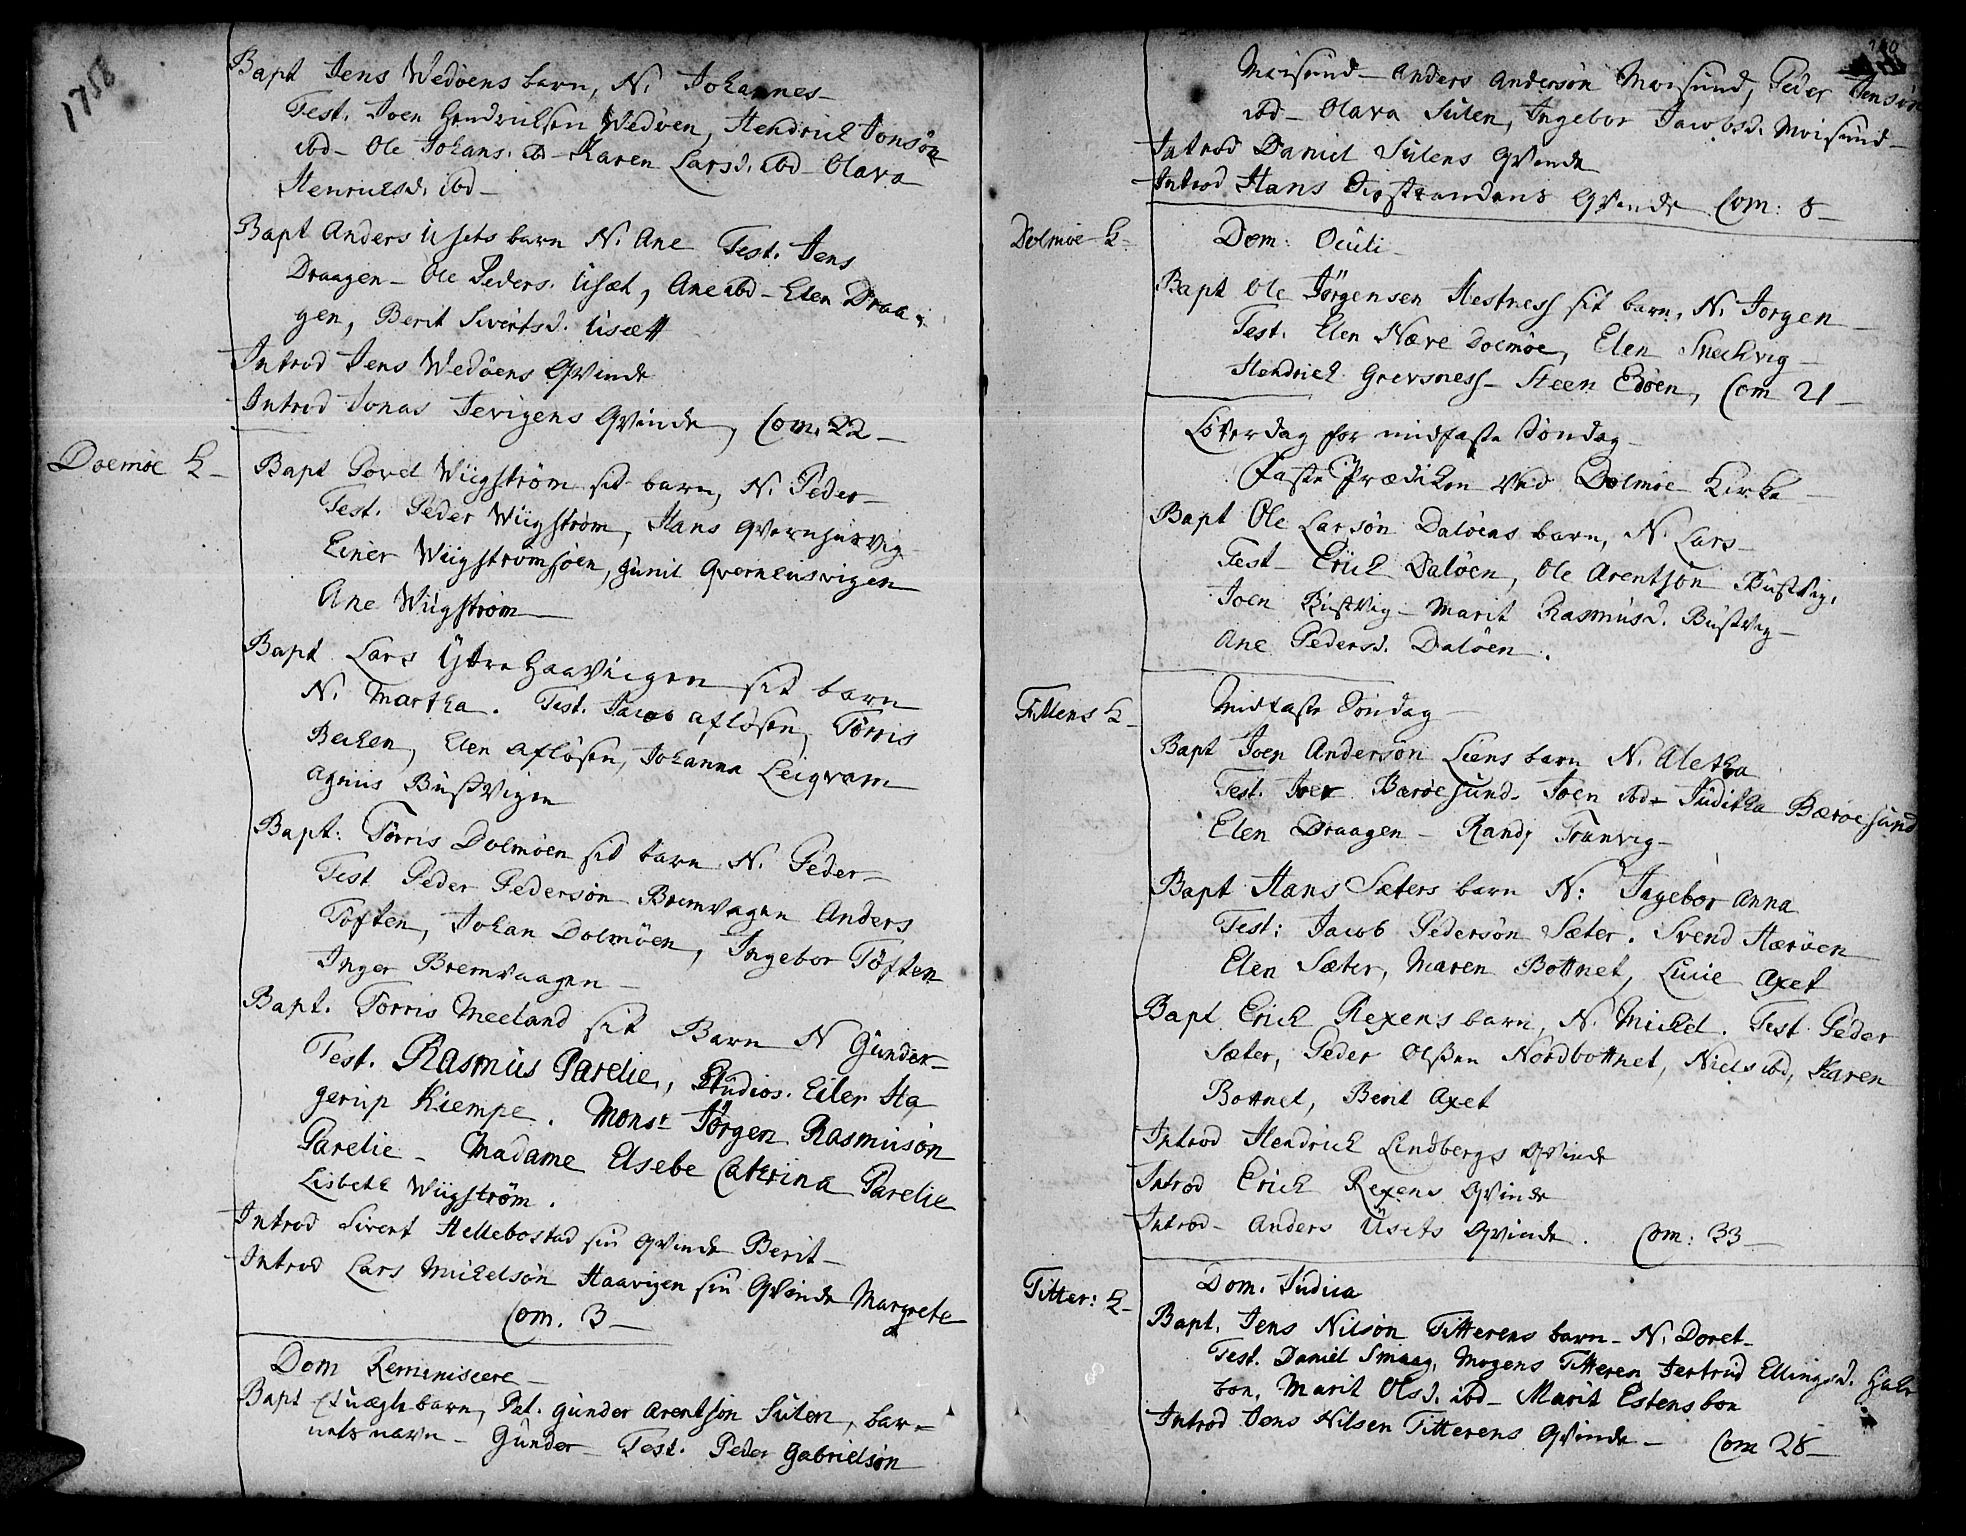 1758
Bapt Jens Wedøens barn, N. Johannes
Test. Joen Hendrichsen Wedøen, Hendrich Jonsøn
ibd - Ole Johans. ibd - Karen Larsd. ibd - Olava
Henrichsd. ibd -
Bapt Anders Usets barn N. Ane Test. Jens
Draagen - Ole Peders. Usæt, Ane ibd - Elen Draa-
gen, Berit Sivertsd. Usætt
Introd Jens Wedøens Qvinde
Introd Jonas Jevigens Qvinde, Com. 22 -
Dolmøe K -
Bapt Povel Wügstrøm sit barn, N. Peder
Test. Peder Wügstrøm, Hans Qvernhusvig
Einer Wügstrømsøen, Gunil Qvernhusvigen
Ane Wügstrøm
Bapt Lars Ytre Haavigen sit barn
N. Martha. Test. Jacob Afløsen, Tørris
Bechen, Elen Afløsen, Johanna Leiqvam
Agniis Bustvigen
Bapt: Tørris Dolmøen sit barn N. Peder -
Test Peder Pedersøn Bremvagen Anders
Tøften, Johan Dolmøen, Ingebor Tøften
Inger Bremvaagen -
Bapt. Tørris Meeland sit Barn N Gunder -
Test. Rasmus Parelie, Studios. Eiler Ha
gerup Kiempe. Monsr Jørgen Rasmusøn
Parelie - Madame Elsebe Catrina Parelie
Lisbeth Wügstrøm.
Introd Sivert Hellebostad sin Qvinde Berit -
Introd Lars Michelsøn Haavigen sin Qvinde Margrete
Com. 3 -
Dom Reminiscere -
Bapt Et uægte barn, Pat. Gunder Arentsøn Sulen, bar-
nets navn - Gunder Test. Peder Gabrielsøn
Moisund - Anders Andersøn Moisund, Peder Jensøn
ibd - Olava Sulen, Ingebor Jacobsd. Moisund -
Introd Daniel Sulens Qvinde
Introd Hans Qvinde Com: 8 -
Dolmøe K -
Dom: Oculi -
Bapt Ole Jørgensen Hestness sit barn, N. Jørgen -
Test. Elen Næve Dolmøe, Elen Sneckvig -
Hendrich Grevsness - Steen Edøen, Com 21 -
Løverdag for midfaste Søndag -
Faste Prædiken ved Dolmøe Kirke -
Bapt Ole Larsøn Daløens barn, N. Lars -
Test - Erich Daløen, Ole Arentsøn Bustvig,
Joen Bustvig - Marit Rasmusd. Bustvig -
Ane Pedersd. Daløen.
Fillens K -
Midfaste Søndag -
Bapt Joen Andersøn Liens barn N. Aletha
Test. Iver Barøesund - Joen ibd - Juditha Bærøesund
Elen Draagen - Randj Tranvig -
Bapt Hans Sæters barn N: Ingebor Anna
Test: Jacob Pedersøn Sæter. Svend Hærøen
Elen Sæter, Maren Bottnet, Lucie Axet
Bapt Erich Rexens barn, N. Michel. Test. Peder
Sæter, Peder Olssen Nordbottnet, Niels ibd, Karen
Bottnet, Berit Axet
Introd Hendrich Lindbergs Qvinde
Introd Erich Rexens Qvinde
Introd - Anders Üsets Qvinde. Com: 33 -
Titter: K -
Dom. Judica
Bapt. Jens Nilsøn Titterens barn - N. Doret -
Test. Daniel Smaag, Mogens Titteren Jertrud Ellingsd. Hale
boe, Marit Olsd. ibd - Marit Estensboe
Introd Jens Nilsen Titterens Qvinde - Com 28 -